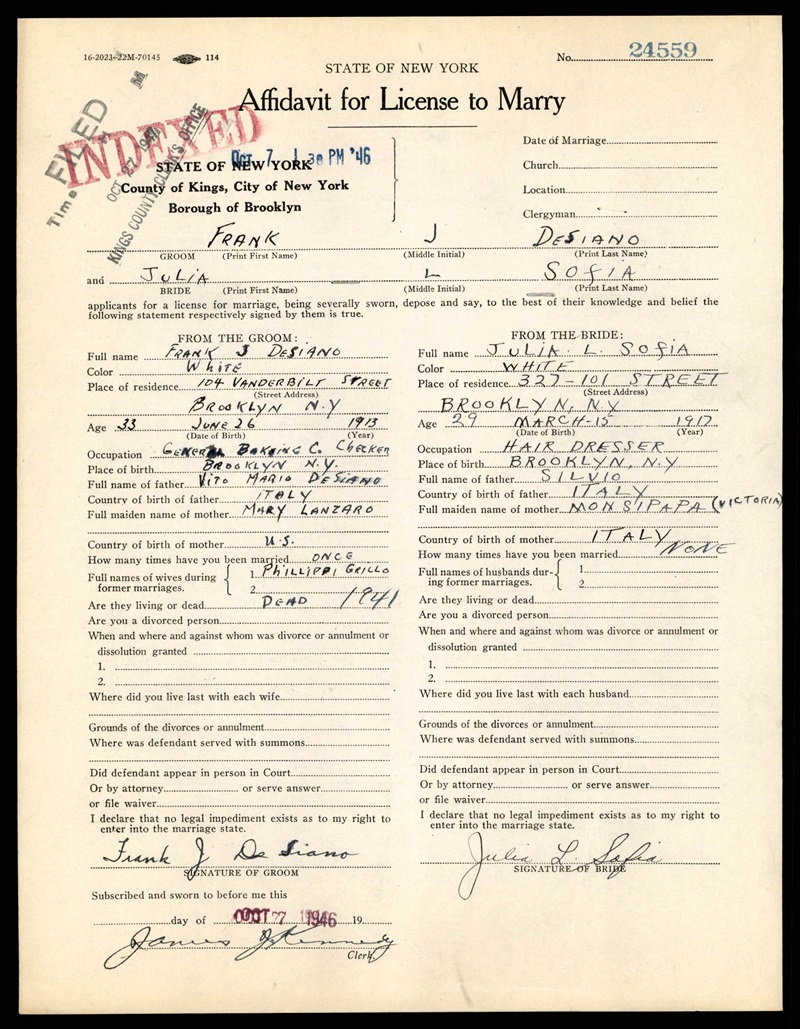 16-2023-22M-70145 114
No. 24559
STATE OF NEW YORK
Affidavit for License to Marry
INDEXED
Time FILED M
OCT 7 1946
KINGS COUNTY CLERK'S OFFICE
OCT 7 1 30 PM '46
STATE OF NEW YORK
County of Kings, City of New York
Borough of Brooklyn
Date of Marriage
Church
Location
Clergyman
FRANK J DESIANO
GROOM (Print First Name) (Middle Initial) (Print Last Name)
and JULIA L SOFIA
BRIDE (Print First Name) (Middle Initial) (Print Last Name)
applicants for a license for marriage, being severally sworn, depose and say, to the best of their knowledge and belief the
following statement respectively signed by them is true.
FROM THE GROOM:
Full name FRANK J DESIANO
Color WHITE
Place of residence 104 VANDERBILT STREET
(Street Address)
BROOKLYN N.Y
Age 33 JUNE 26 1913
(Date of Birth) (Year)
Occupation GENERAL BAKING C. CHECKER
Place of birth BROOKLYN N.Y.
Full name of father VITO MARIO DESIANO
Country of birth of father ITALY
Full maiden name of mother MARY LANZARO
Country of birth of mother U.S.
How many times have you been married ONCE
Full names of wives during former marriages. 1. PHILLIPPI GRILLO
2.
Are they living or dead DEAD 1941
Are you a divorced person
When and where and against whom was divorce or annulment or
dissolution granted
1.
2.
Where did you live last with each wife
Grounds of the divorces or annulment
Where was defendant served with summons
Did defendant appear in person in Court
Or by attorney or serve answer
or file waiver
I declare that no legal impediment exists as to my right to
enter into the marriage state.
Frank J De Siano
SIGNATURE OF GROOM
Subscribed and sworn to before me this
day of OCT 7 1946 19
James J Kennedy
Clerk
FROM THE BRIDE:
Full name JULIA L. SOFIA
Color WHITE
Place of residence 327-101 STREET
(Street Address)
BROOKLYN, N.Y
Age 29 MARCH-15 1917
(Date of Birth) (Year)
Occupation HAIR DRESSER
Place of birth BROOKLYN, N.Y
Full name of father SILVIO
Country of birth of father ITALY
Full maiden name of mother MONSIPAPA (VICTORIA)
Country of birth of mother ITALY
How many times have you been married NONE
Full names of husbands during former marriages. 1.
2.
Are they living or dead
Are you a divorced person
When and where and against whom was divorce or annulment or
dissolution granted
1.
2.
Where did you live last with each husband
Grounds of the divorces or annulment
Where was defendant served with summons
Did defendant appear in person in Court
Or by attorney or serve answer
or file waiver
I declare that no legal impediment exists as to my right to
enter into the marriage state.
Julia L Sofia
SIGNATURE OF BRIDE